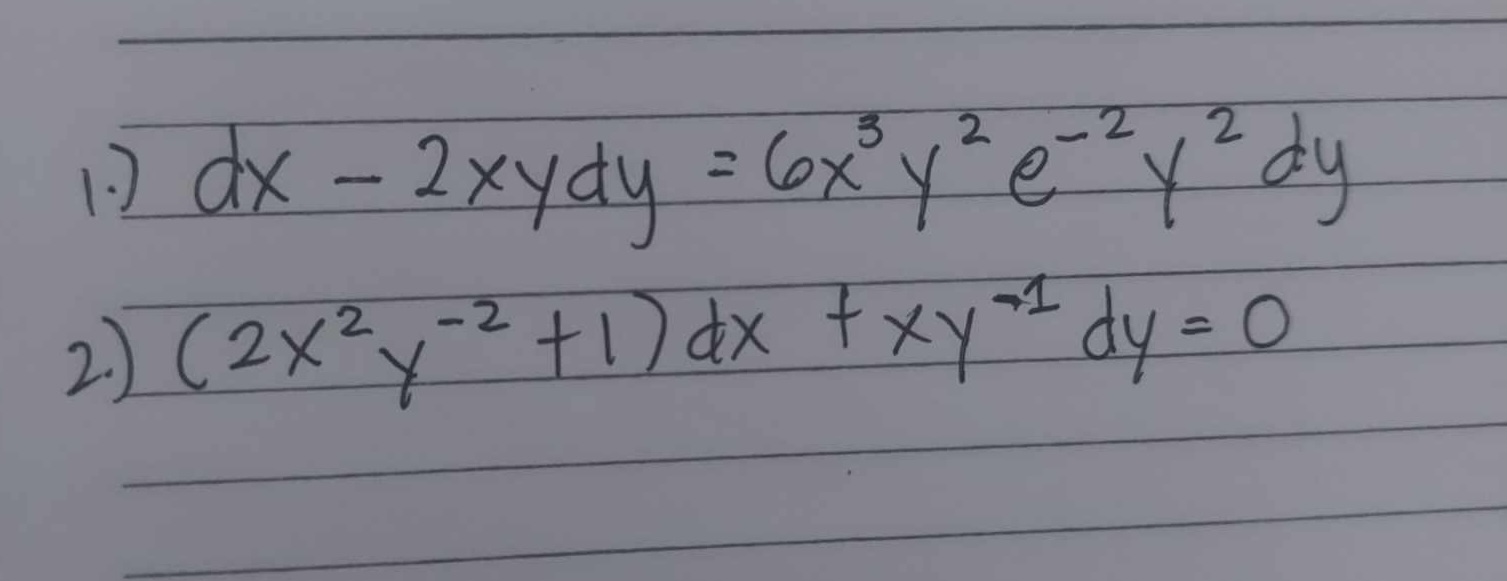 1.) dx - 2xydy = 6x³y²e⁻²y²dy
2.) (2x²y⁻² + 1)dx + xy⁻¹dy = 0